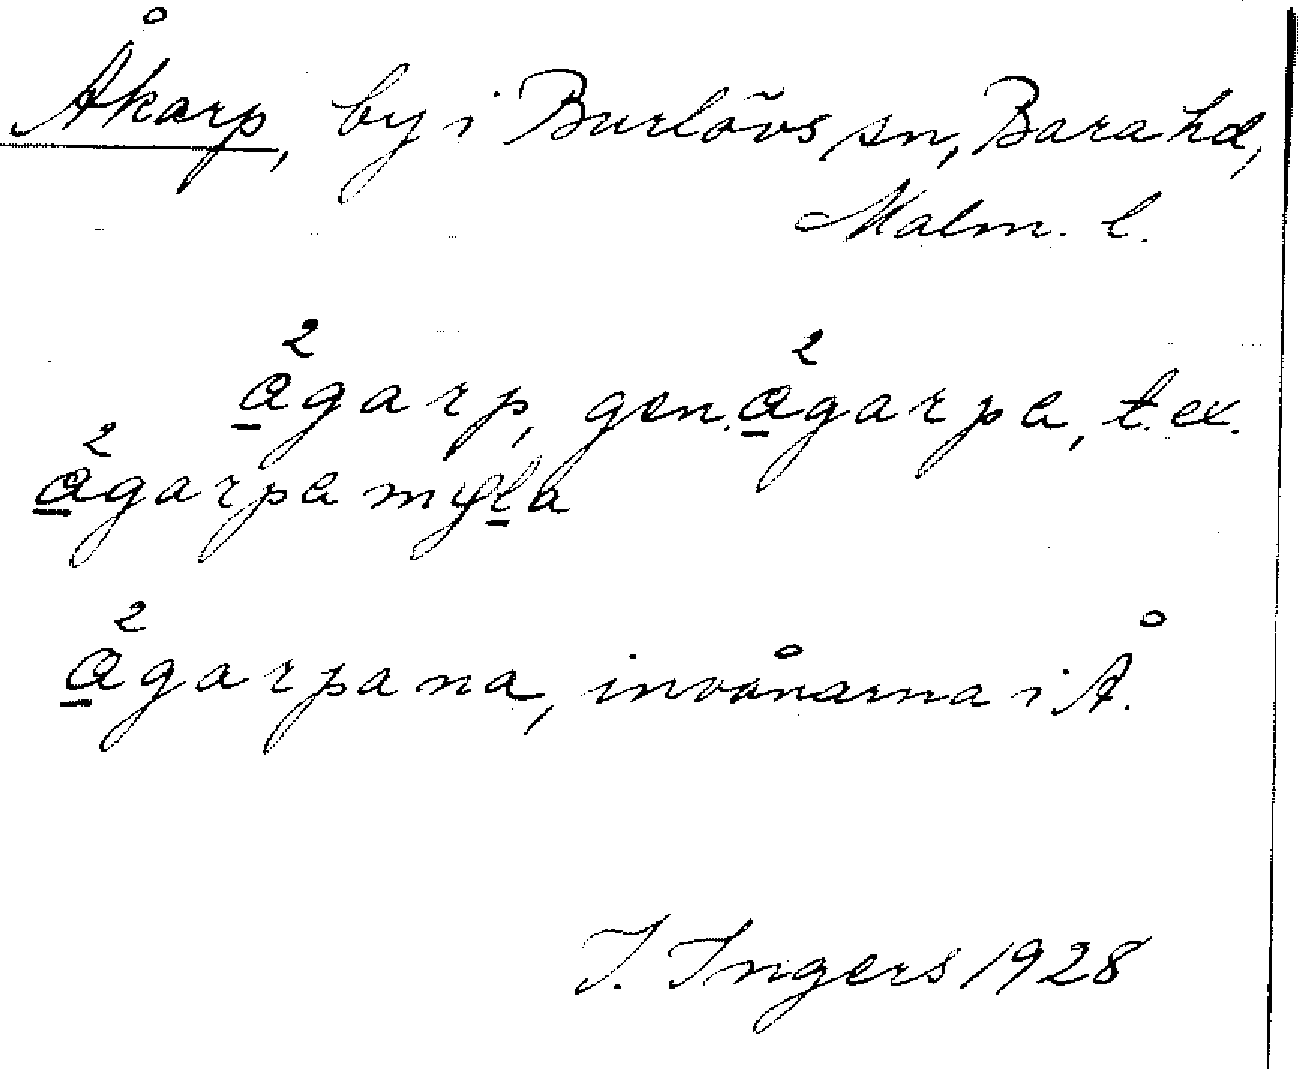 Åkarp, by i Burlövs sn, Bara hd,
Malm. l.
²ågarp, gen. ²ågarpa, t. ex.
²ågarpa myla
²ågarpana, invånarna i Å.
I. Ingers 1928